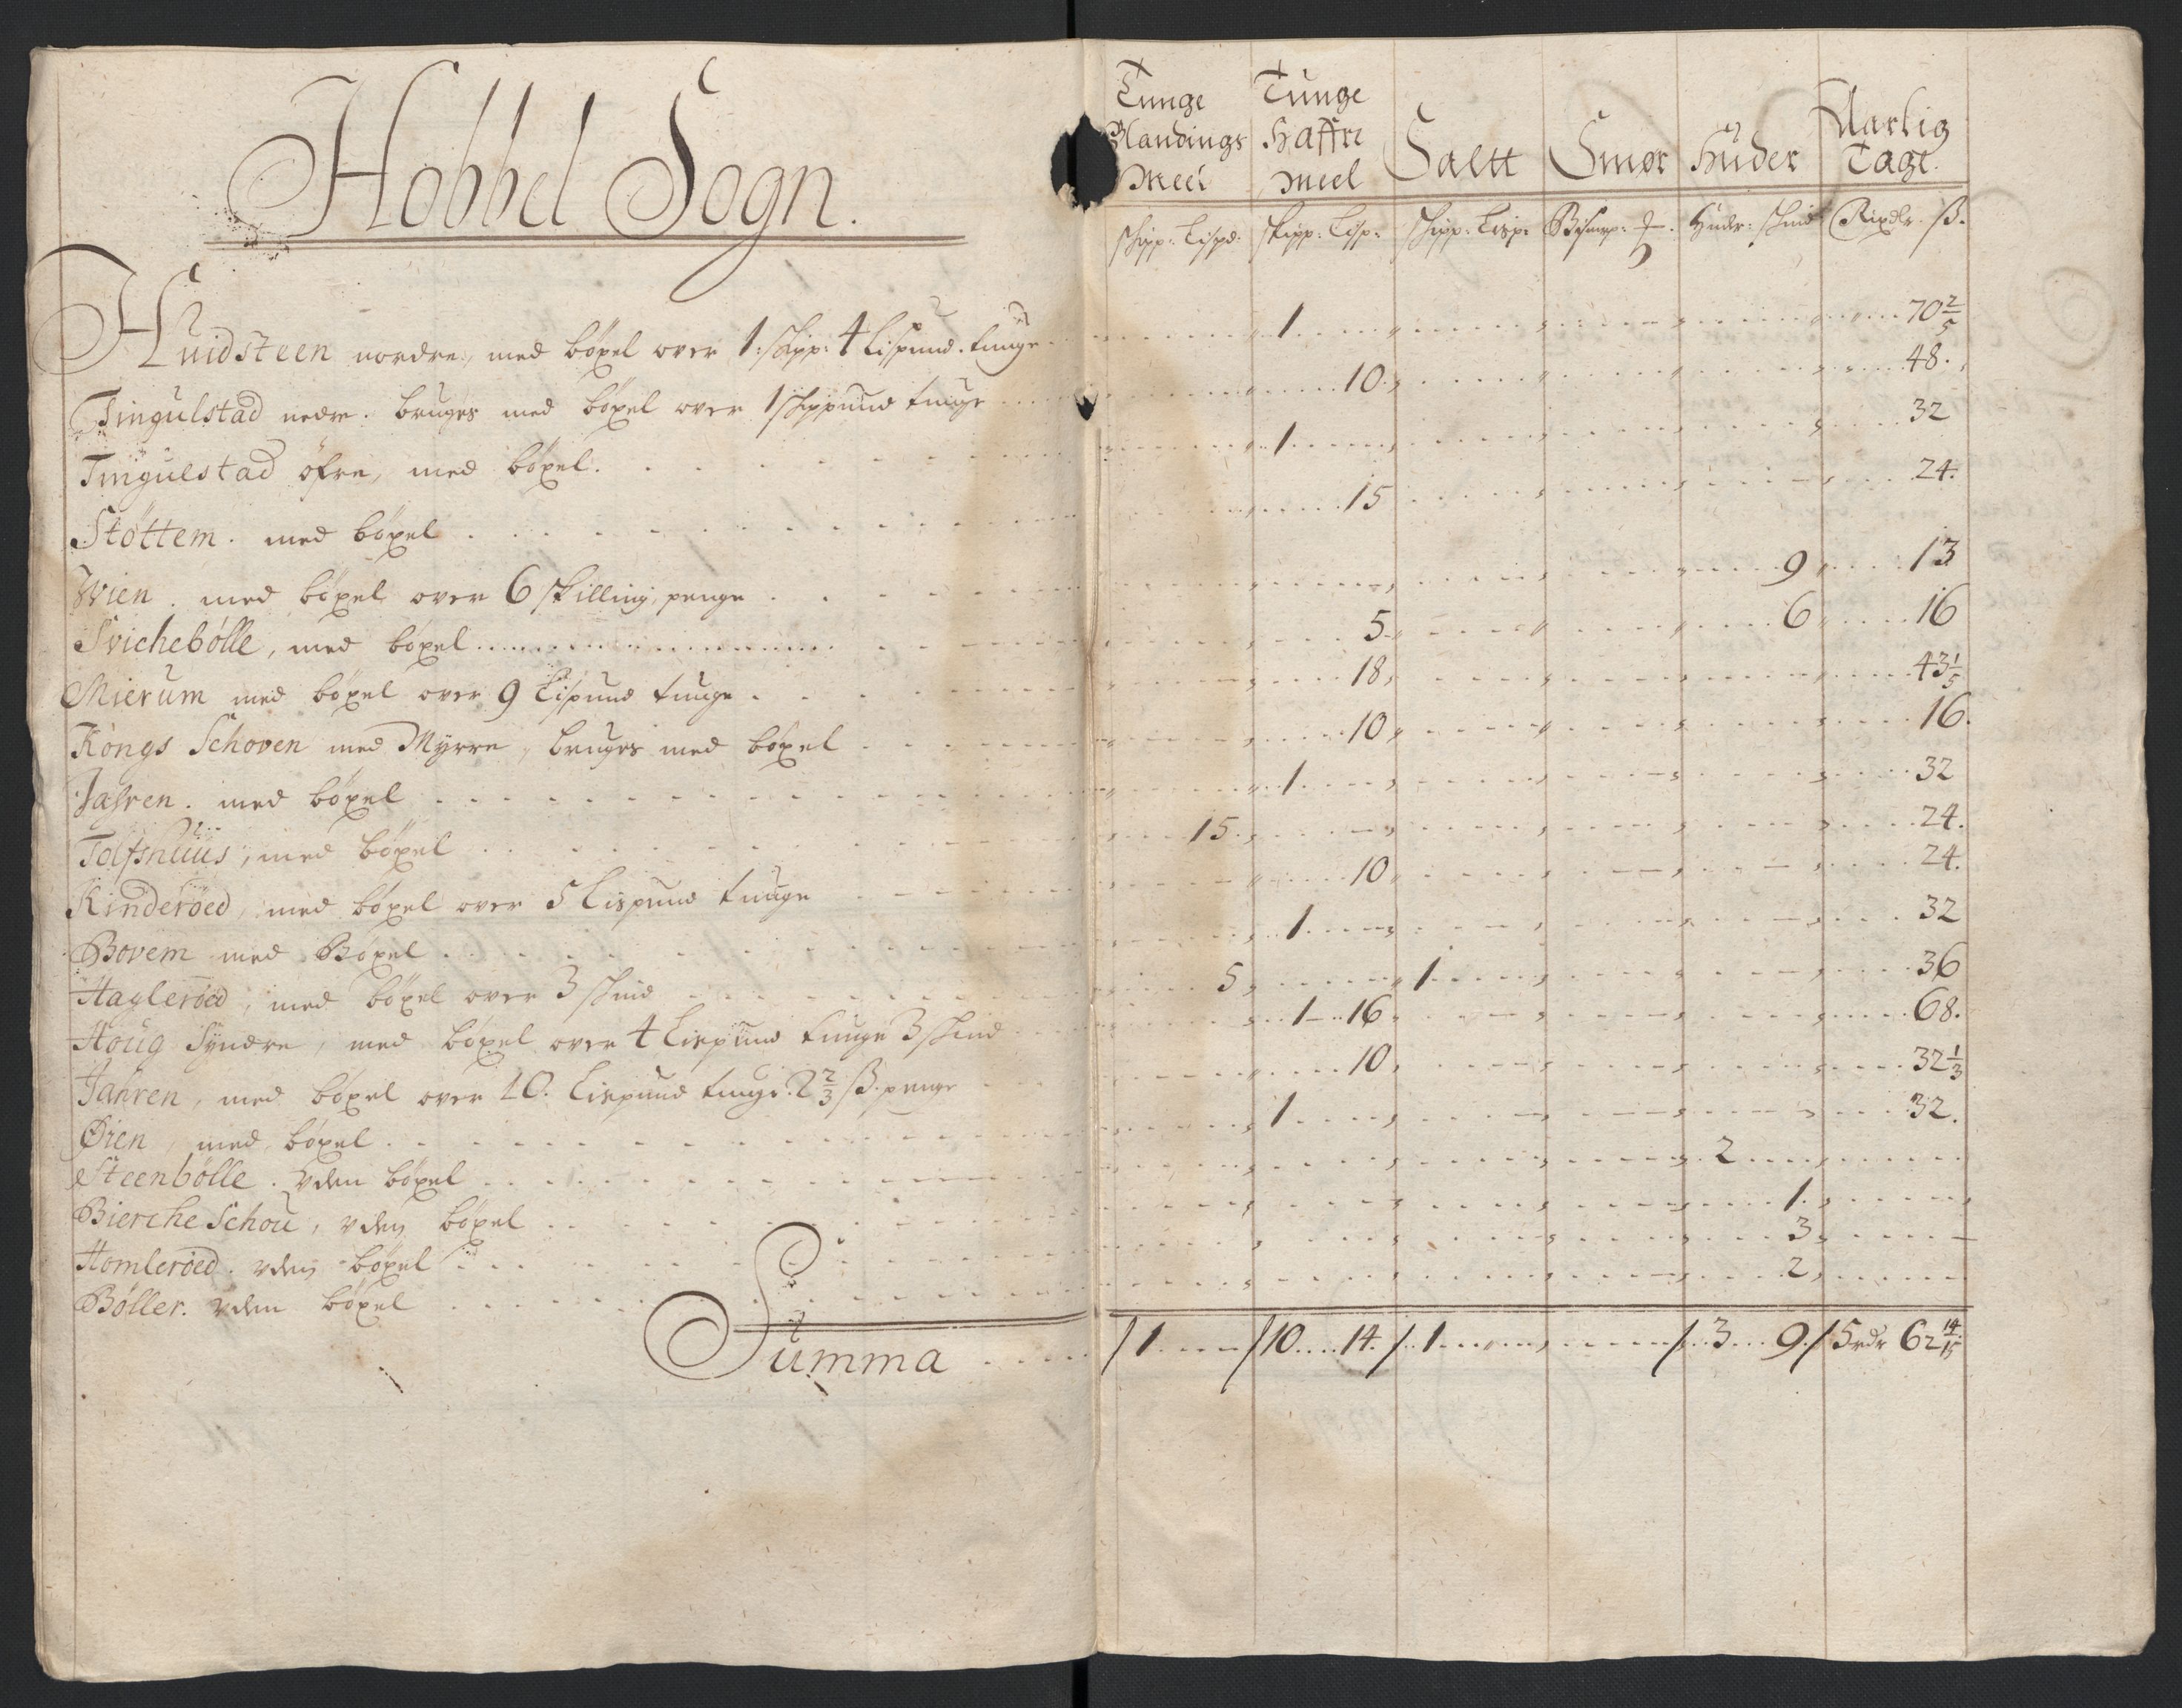 Hobbel Sogn.
Tunge Blandings Meel | Tunge Haffre Meel | Saltt | Smør | Huder | Aarlig Tage.
schipp: Lispd: | skipp: Lisp: | schipp: Lisp: | Bismrp: | Huder: skind | Rixdlr. ß.
Huidsteen nordre, med böxel over 1. skipp: 4 Lispund. tunge 1 70 2/5
Tingulstad nedre. bruges med böxel over 1 schippund tunge 10. 48.
Tingulstad öfre, med böxel. 1 32
Støttem. med böxel 15 24.
Wien. med böxel over 6 skilling penge 9 13
Svichebölle, med böxel 5 6 16
Mierum med böxel over 9 Lispund tunge 18 43 1/5
Kongs Schoven med Myrre, bruges med böxel 10 16.
Jahren. med böxel 1 32
Tolfshuus, med böxel 15. 24.
Kinderöed, med böxel over 5 Lispund tunge 10 24.
Bovem med Böxel 1 32
Hagleröed, med böxel over 3 skind 5 1 36
Houg Syndre, med böxel over 4 Lispund tunge 3 skind 1 16 68.
Jahren, med böxel over 10. Lispund tunge. 2 2/3 ß. penge 10 32 1/3
Øien, med böxel 1 32.
Steenbölle. vden böxel 2
Bierche Schou, vden böxel 1.
Homleröed. vden böxel 3
Böller. vden böxel 2
Summa /1 /10 14. /1 /3 9. /5 rdr 62 14/15